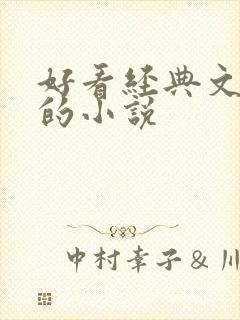 好看經典文
的小說
中村幸子 & 川